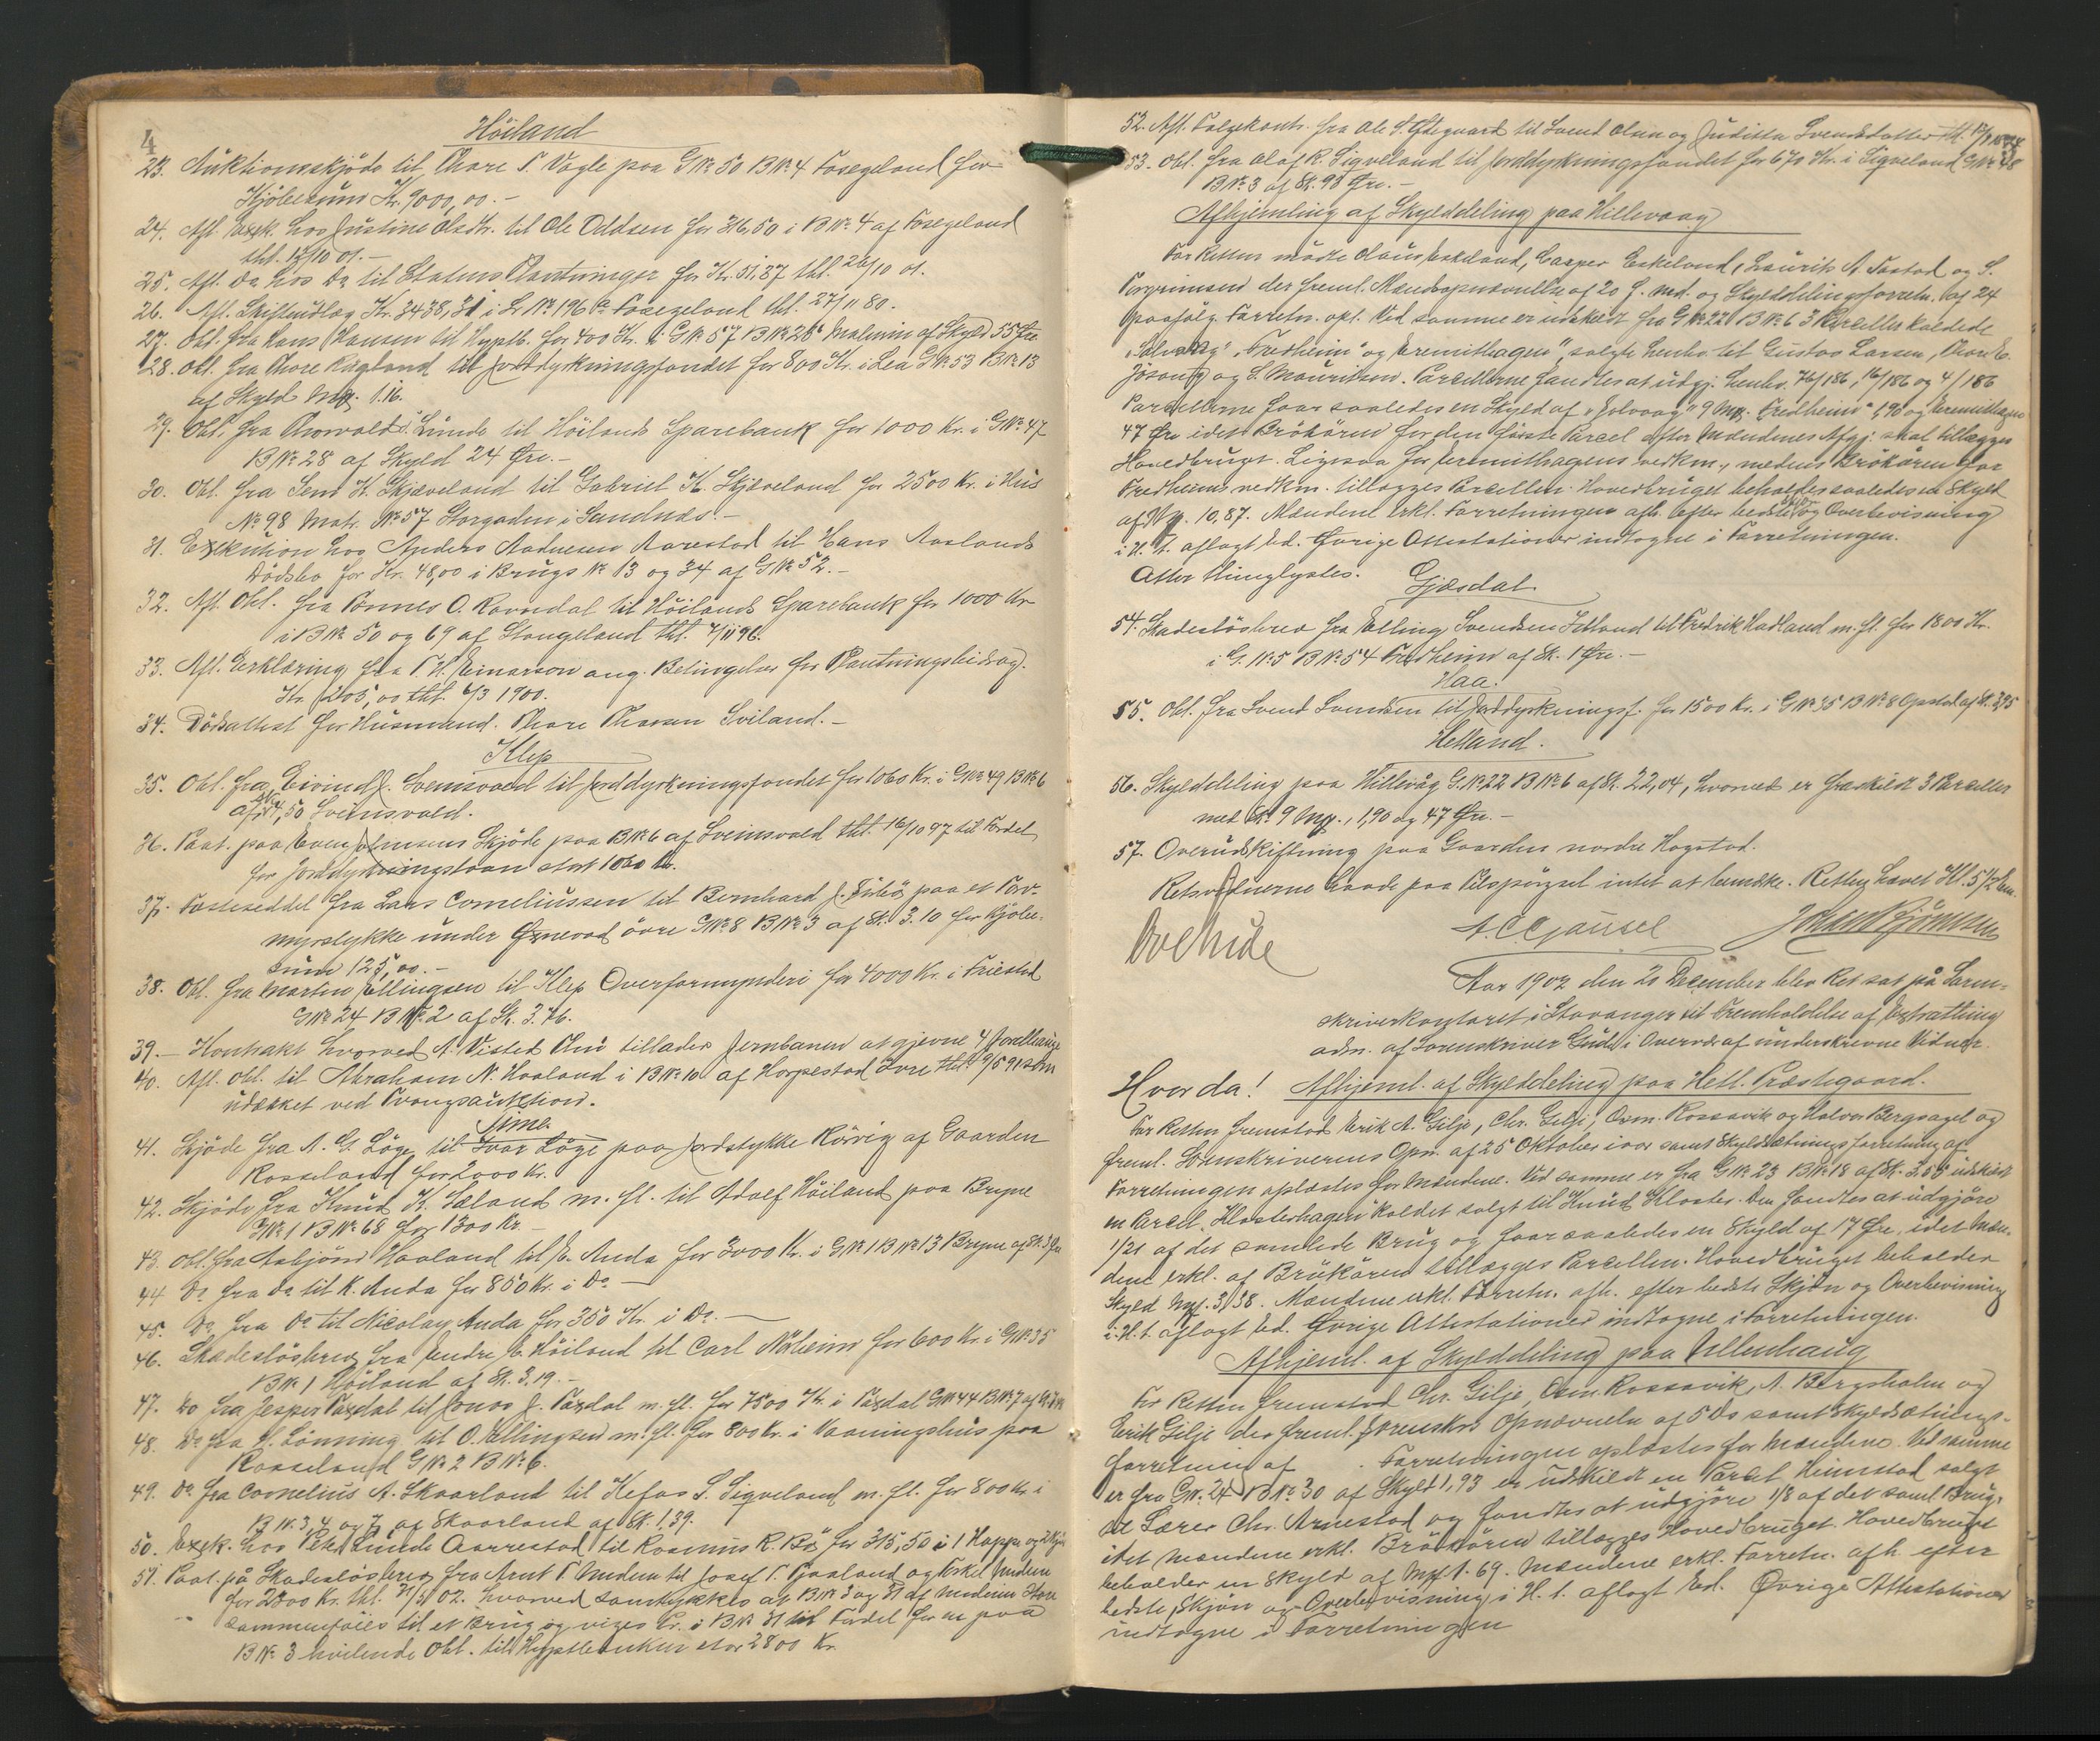 4
Höiland
23. Auktionsskjöde til Thore T. Vagle paa GNo 50 BNo 4 Fosegeland for
Kjöbesum Kr. 9000,00.-
24. Afl. Exek. hos Justine Olsdtr. til Ole Oddsen for 316,50 i BNo 4 af Fosegeland
thl. 12/10 01.-
25. Afl. Do hos Do til Statens Plantninger for Kr. 51,87 thl. 26/10 01.
26. Afl. Skifteudlæg Kr. 3438,31 i LNo 196a Fosegeland thl. 27/11 80.
27. Obl. fra Hans Hansen til Hyptb. for 400 Kr. i GNo 57 BNo 26 Malmin af Skyld 55 Öre
28. Obl. fra Thore Rägland til Jorddyrkningsfondet for 800 Kr. i Lea GNo 53 BNo 13
af Skyld Mrk. 1.16.
29. Obl. fra Thorvald Lunde til Höilands Sparebank for 1000 Kr. i GNo 47
BNo 28 af Skyld 24 Öre.-
30. Obl. fra Sem K. Skjæveland til Gabriel K. Skjæveland for 2500 Kr. i Hus
No 98 Matr. No 57 Storgaden i Sandnæs.-
31. Exekution hos Anders Aadnesen Aarestad til Hans Aaslands
Dödsbo for Kr. 48,00 i Brugs No 13 og 34 af GNo 52.-
32. Afl. Obl. fra Tönnes O. Ravndal til Höilands Sparebank for 1000 Kr
i BNo 50 og 69 af Stangeland thl. 7/11 96.
33. Afl. Erklæring fra T. H. Einarson ang. Betingelser for Plantningsbidrag.
Kr. 205,00 thl. 6/3 1900.
34. Dödsattest for Husmand. Thore Thorsen Sviland.-
Klep
35. Obl. fra Eivind J. Sveinsvold til Jorddyrkningsfondet for 1060 Kr. i GNo 49 BNo 6
af Sk. 4,50 Sveinsvold.
36. Paat. paa Even Johnsens Skjöde paa BNo 6 af Sveinsvold thl. 16/10 97 til Fordel
for Jorddyrkningslaan stort 1060 Kr.
37. Festeseddel fra Lars Corneliussen til Bernhard J. Süböpaa et Torv-
myrstykke under Örnevad övre GNo 8 BNo 3 af Sk. 3.10 for Kjöbe-
sum 125,00.-
38. Obl. fra Martin Ellingsen til Klep Overformynderi for 4000 Kr. i Friestad
GNo 24 BNo 2 af Sk. 3.76.
39.- Kontrakt hvorved A. Visted Thu tillader Jernbanen at gjevne 4 Jordlinie
40. Afl. Obl. til Abraham N. Haaland i BNo 10 af Horpestad Övre thl. 9/5 91 som
udslettet ved Tvangsauktion.
Time.
41. Skjöde fra A. G. Löge til Ivar Löge paa Jordstykke Rörvig af Gaarden
Rosseland for 2000 Kr.
42. Skjöde fra Knud K. Sæland m. fl. til Adolf Höiland paa Bryne
GNo 1 BNo 68 for 1300 Kr.-
43. Obl. fra Asbjörn Haaland til E. Anda for 3000 Kr. i GNo 1 BNo 13 Bryne af Sk. 3 Öre
44. Do fra Do til K. Anda for 850 Kr. i Do.-
45. Do fra Do til Nicolay Anda for 350 Kr. i Do.-
46. Skadeslösbrev fra Endre E. Höiland til Carl Nörheim for 600 Kr. i GNo 35
BNo 1 Höiland af Sk. 3.19.-
47. Do fra Jesper Taxdal til Jonas J. Taxdal m. fl. for 7500 Kr. i Taxdal GNo 44 BNo 7 af
48. Do fra H. Lönning til O. Ellingsen m. fl. for 800 Kr. i Vaaningshus paa
Rosseland GNo 2 BNo 6.
49. Do fra Cornelius A. Skaarland til Kefas S. Sigveland m. fl. for 800 Kr. i
BNo 3, 4 og 7 af Skaarland af Sk. 1,39.
50. Exek. hos Peter Lunde Aarrestad til Rasmus R. Bö for 315,50 i 1 Hoppe og 2 Kjör
51. Paat. på Skadeslösbrev fra Arnt T. Undem til Josef T. Gjaaland og Eskel Undem
for 2800 Kr. thl. 7/5 02. hvorved samtykkes at BNo 3 og 31 af Undeim Store
sammenföies til et Brug og viges Pr. i BNo 31 til Fordel for en paa
BNo 3 hvilende Obl. til Hypthbanken stor 2800 Kr.
52. Afl. Folgekontr. fra Ole S. Ödegaard til Svend Olsen og Juditta Svendsdatter thl.
53. Obl. fra Olaf R. Sigveland til Jorddyrkningsfondet for 670 Kr. i Sigveland GNo 48
BNo 3 af Sk. 98 Öre.-
Afhjemling af Skylddeling paa Hillevaag
For Retten mödte Claus Eskeland, Casper Eskeland, Laurits A. Tastad og S.
Torgrimsen der freml. Mandsopnævnelse af 20 f. Md. og Skylddelingsforretn. af 24
paafölg. Forretn. opl. Ved samme er udskildt fra GNo 22 BNo 6 3 Parceller kaldede
"Solvaag", "Fredheim" og Eremithagen", solgte henhv. til Gustav Larsen, Thore E.
Jösang og S. Mauritsen. Parcellerne fandtes at udgj. henhv. 76/186, 16/186 og 4/186
Parcellerne faar saaledes en Skyld af "Solvaag" 9 Mrk. Fredheim" 1,90 og Eremithagen
47 Öre idet Brökören for den förste Parcel efter Mændenes Afgj. skal tillægges
Hovedbruget. Ligesaa for Eremithagens vedkm., medens Brökören for
Fredheims vedkm. tillægges Parcellen. Hovedbruget beholder saaledes en Skyld
af Mrk. 10,87. Mændene erkl. Forretningen afh. efter bedste Skj og Overbevisning
i H. t. aflagt Ed. Övrige Attestationer indtagne i Forretningen.
Atter thinglystes.
Gjæsdal.
54. Skadeslösbrev fra Elling Svendsen Edland til Fredrik Hadland m. fl. for 1800 Kr.
i G. No 5 BNo 54 Fredheim af Sk. 1 Öre.-
Haa.
55. Obl. fra Svend Svendsen til Jorddyrkningsf. for 1500 Kr. i GNo 35 BNo 8 Opstad af Sk. 3,95
Hetland.
56. Skylddeling paa Hillevåg GNo 22 BNo 6 af Sk. 22,04, hvorved er fraskildt 3 Parceller
med Sk. 9 Mrk., 1,90 og 47 Öre.-
57. Overudskiftning paa Gaarden nordre Hogstad.
Retsvidnerne havde paa Tilspörgsel intet at bemærke. Retten hævet Kl. 5 1/2 Em.
Ove Gude
A. C. Gausel
Johan Bjönnsen
Aar 1902 den 20 December blev Ret sat på Soren-
skriverkontoret i Stavanger til Fremholdelse af Extratthing
adm. af Sorenskriver Gude i Overvær af underskrevne Vidner.
Hvor da! Afhjeml. af Skylddeling paa Hetl. Præstegaard.
For Retten fremstod Erik A. Gilje, Chr. Gilje, Osm. Rossavik og Halvor Bergsagel og
freml. Sorenskriverens Opn. af 25 Oktober i aar samt Skylddelningsforretning af
Forretningen oplæstes for Mændene. Ved samme er fra GNo 23 BNo 18 af Sk. 3.55 udskildt
en Parcel, Klosterhagen kaldet solgt til Knud Kloster. Den fandtes at udgjöre
1/21 af det samlede Brug og faar saaledes en Skyld af 17 Öre, idet Mæn-
dene erkl. at Brökören tillægges Parcellen. Hovedbruget beholder
Skyld Mrk. 3.38. Mændene erkl. Forretn. afh. efter bedste Skjön og Overbevisning
i H. t. aflagt Ed. Övrige Attestationer indtagne i Forretningen.
Afhjeml. af Skylddeling paa Ullenhaug
For Retten fremstod Chr. Gilje, Osm. Rossavik, A. Bergsholm og
Erik Gilje der freml. Sorenskrs Opnævnelse af 5 Ds samt Skyldsætnings-
forretning af . Forretningen oplæstes for Mændene. Ved samme
er fra GNo 24 BNo 30 af Skyld 1,93 er udskildt en Parcel Heimstad solgt
til Lærer Chr. Arnestad og fandtes at udgjöre 1/8 af det saml. Brug,
idet Mændene erkl. Brökören tillægges Hovedbruget. Hovedbruget
beholder en Skyld af Mrk. 1.69. Mændene erkl. Forretn. afh. efter
bedste Skjön og Overbevisning i H. t. aflagt Ed. Övrige Attestationer
indtagne i Forretningen